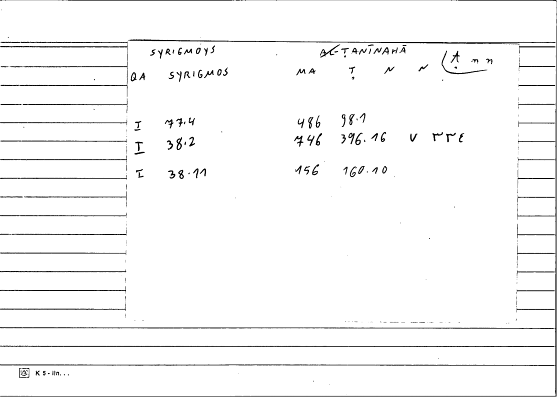 SYRIGMOYS AL-ṬANĪNAHĀ
QA SYRIGMOS MA Ṭ N N Ṭ n n
I 77.4 486 98.1
I 38.2 746 396.16 V ٣٣٤
I 38.11 156 160.10
K 5 - lin. . .